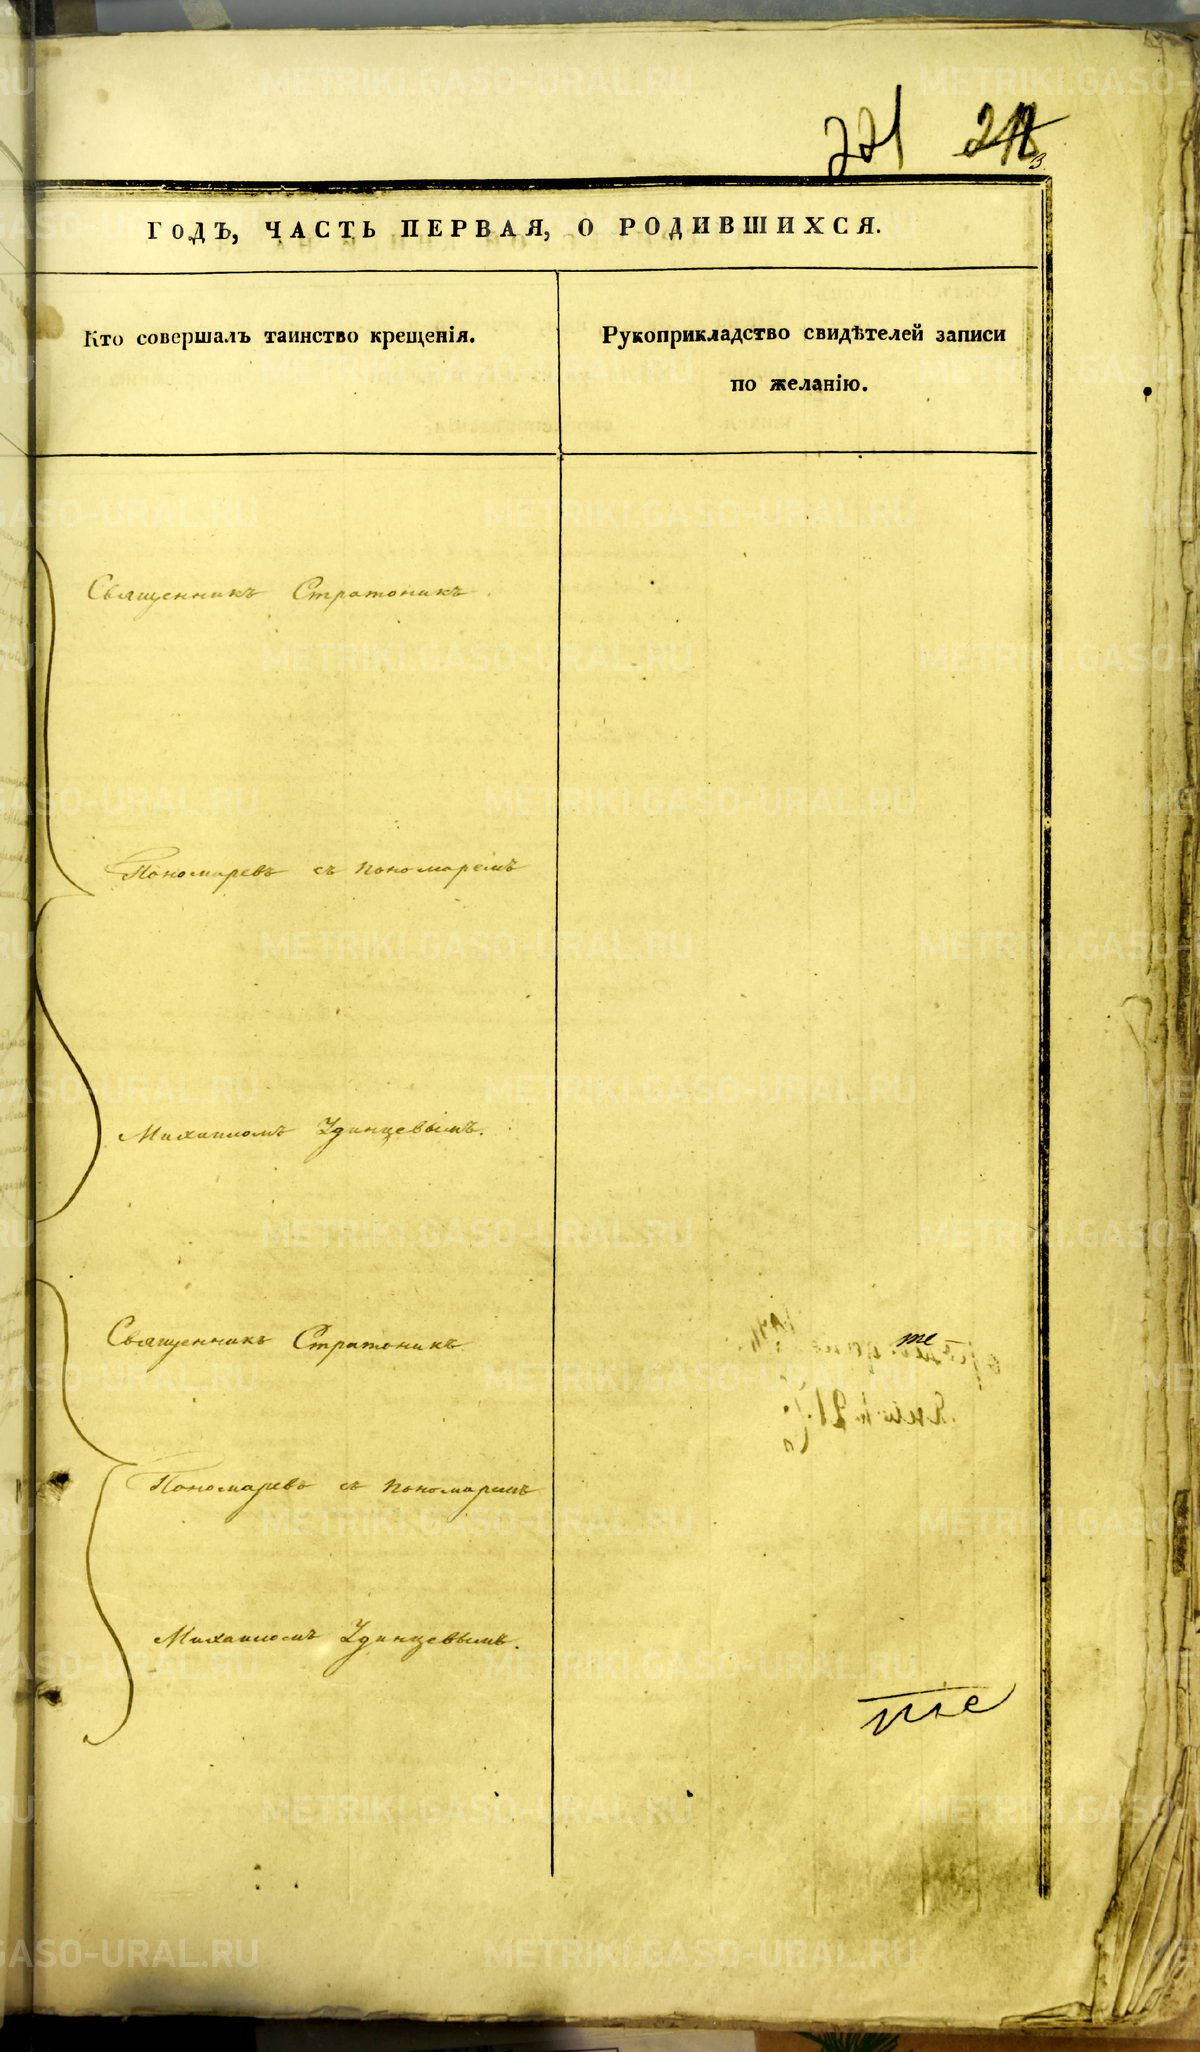 221
ГОДЪ, ЧАСТЬ ПЕРВАЯ, О РОДИВШИХСЯ.
Кто совершалъ таинство крещенія.
Рукоприкладство свидѣтелей записи
по желанію.
Священникъ Стратоникъ
Пономаревъ съ пономаремъ
Михаиломъ Удинцевымъ.
Священникъ Стратоникъ
Пономаревъ съ пономаремъ
Михаиломъ Удинцевымъ.
METRIKI.GASO-URAL.RU